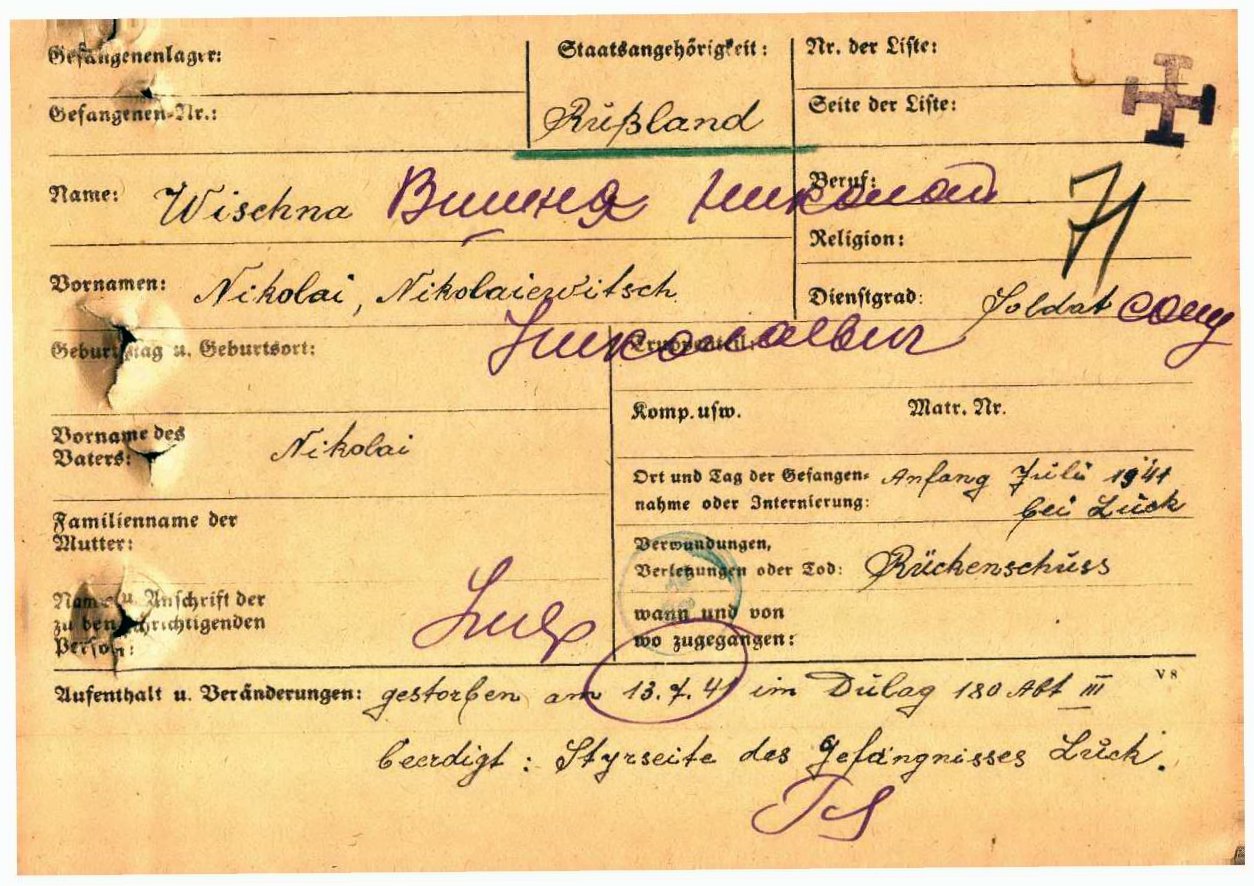 Gefangenenlager: Staatsangehörigkeit: Nr. der Liste:
Gefangenen-Nr.: Rußland Seite der Liste:
Name: Wischna Вишня Николай Beruf:
71
Religion:
Vornamen: Nikolai, Nikolaiewitsch Dienstgrad: Soldat солд
Николаевич
Geburtstag u. Geburtsort: Truppenteil:
Komp. usw. Matr. Nr.
Vorname des
Vaters: Nikolai
Ort und Tag der Gefangen- Anfang Juli 1941
nahme oder Internierung: bei Luck
Familienname der
Mutter:
Verwundungen,
Verletzungen oder Tod: Rückenschuss
Name u. Anschrift der
zu benachrichtigenden
Person:
wann und von
wo zugegangen:
V 8
Aufenthalt u. Veränderungen: gestorben am 13.7.41 im Dulag 180 Abt III
beerdigt: Styrseite des Gefängnisses Luck.